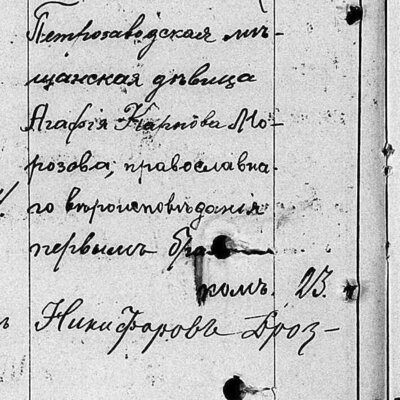 Петрозаводская мѣ-
щанская дѣвица
Агафія Карпова Мо-
розова, православна-
го вѣроисповѣданія
первымъ бра
комъ. 23.
Никифоровъ Дроз-